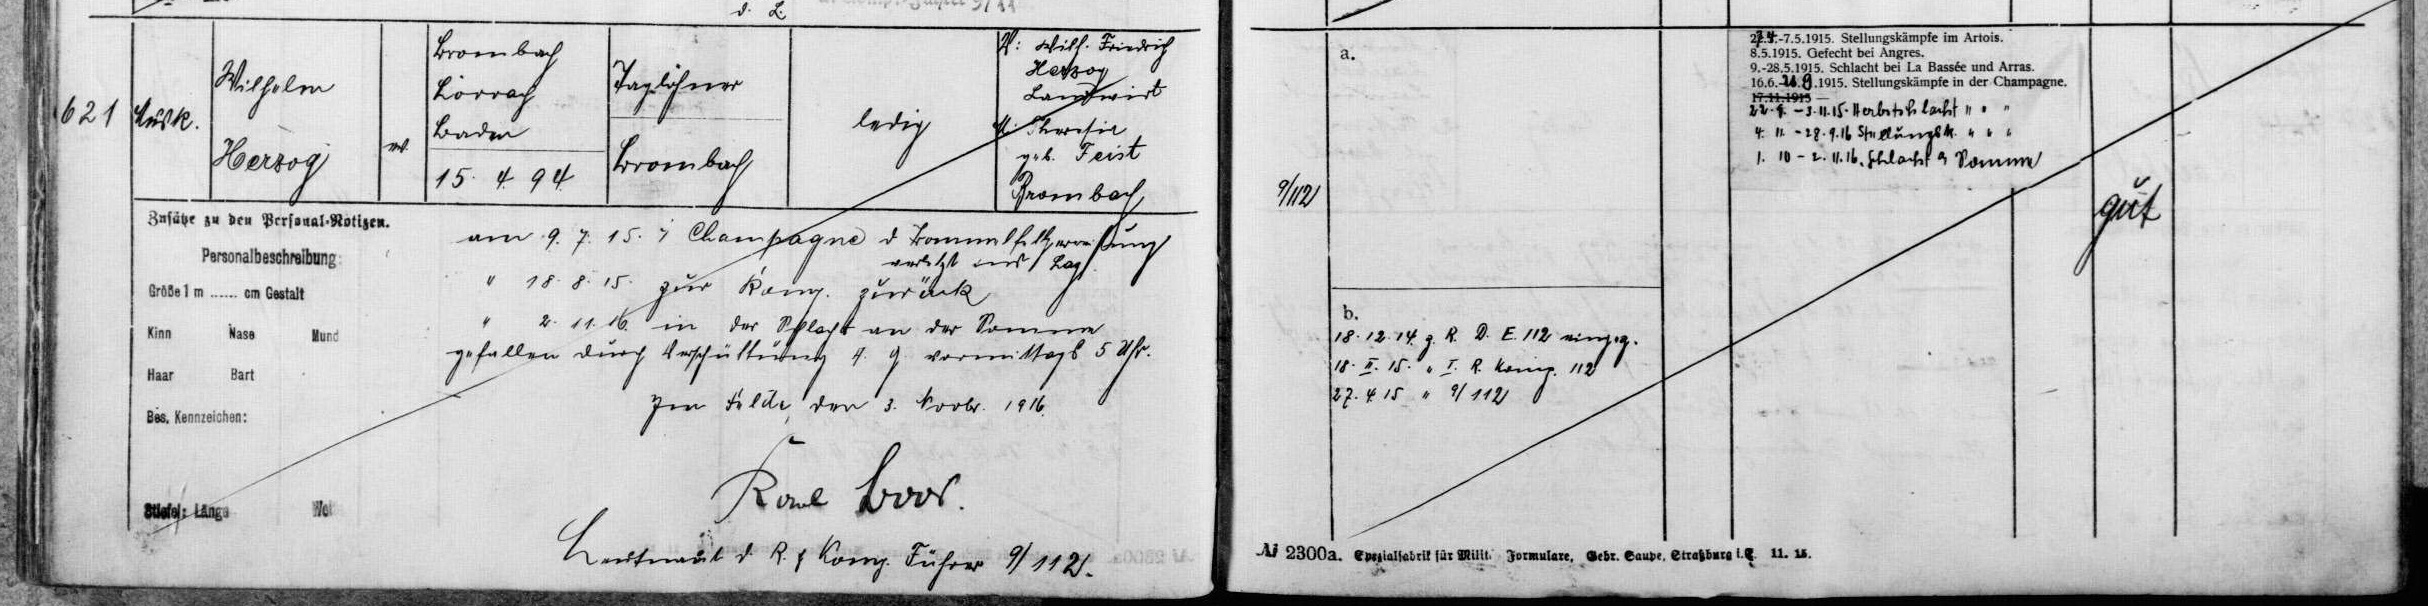 d. L.
621
Musk.
Wilhelm
Herzog
ev.
Brombach
Lörrach
Baden
15. 4. 94.
Taglöhner
Brombach
ledig
V: Wilh. Friedrich
Herzog
Landwirt
M: Theresia
geb. Feist
Brombach
Zusätze zu den Personal-Notizen.
Personalbeschreibung:
Größe 1 m ...... cm Gestalt
Kinn Nase Mund
Haar Bart
Bes. Kennzeichen:
Stiefel: Länge
am 9. 7. 15. i Champagne d
verletzt ins Laz.
" 18. 8. 15. zur Komp. zurück
" 2. 11. 16. in der Schlacht an der Somme
gefallen durch Verschüttung vormittags 5 Uhr.
Im Felde, den 3. Novbr. 1916.
Karl Boos.
Leutnant d. R. & Komp. Führer 9/112.
9/112
a.
b.
18. 12. 14. z. R. D. E. 112 eingez.
18. II. 15. " I. R. Komp. 112
27. 4. 15 " 9/112
-7.5.1915. Stellungskämpfe im Artois.
8.5.1915. Gefecht bei Angres.
9.-28.5.1915. Schlacht bei La Bassée und Arras.
16.6.- .9.1915. Stellungskämpfe in der Champagne.
17.11.1915 —
22. 9. - 3. 11. 15. Herbstschlacht " " "
4. 11. - 28. 9. 16 Stellungsk. " " "
1. 10 - 2. 11. 16. Schlacht a Somme
gut
Ai 2300a. Spezialfabrik für Milit. Formulare, Gebr. Saupe, Straßburg i. E. 11. 15.